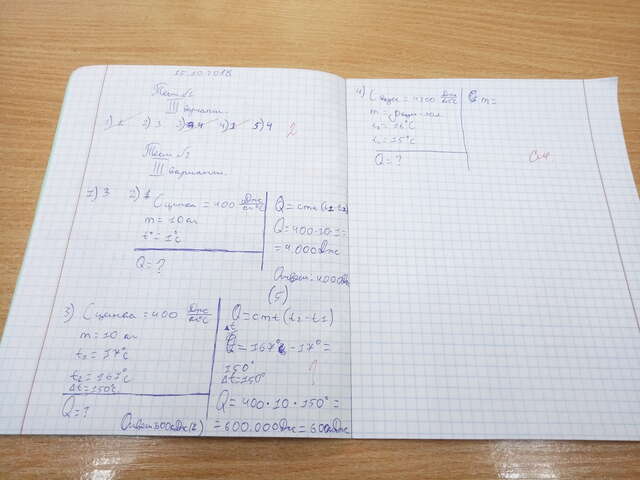 15.10.2018
Тест №1
III вариант.
1) 1 2) 3 3) 4 4) 1 5) 4
2
Тест №2
III вариант.
1) 3 2) C цинка = 400 Дж/кг°C
m = 10 кг
t° = 1°C
Q = ?
Q = cm(t2-t1)
Q = 400·10·1=
= 4000Дж
Ответ: 4000Дж
(5)
3) C цинка = 400 Дж/кг°C
m = 10 кг
t1 = 17°C
t2 = 167°C
Δt = 150°C
Q = ?
Q = cm(t2-t1)
Δt
= 167° - 17° =
150°
Δt = 150°
Q = 400·10·150° =
= 600.000Дж = 600кДж
Ответ: 600кДж(2)
4) C воды = 4200 Дж/кг°C
m =
t2 =
t1 = 15°C
Q = ?
m =